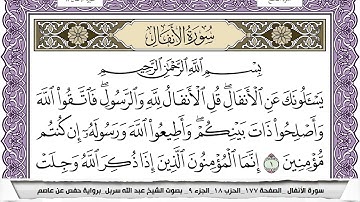 سُورَةُ الأَنفَال
بِسْمِ اللَّهِ الرَّحْمَٰنِ الرَّحِيمِ
يَسْـَٔلُونَكَ عَنِ الْأَنفَالِ ۖ قُلِ الْأَنفَالُ لِلَّهِ وَالرَّسُولِ ۖ فَاتَّقُوا اللَّهَ
وَأَصْلِحُوا ذَاتَ بَيْنِكُمْ ۖ وَأَطِيعُوا اللَّهَ وَرَسُولَهُ إِن كُنتُم
مُّؤْمِنِينَ ١ إِنَّمَا الْمُؤْمِنُونَ الَّذِينَ إِذَا ذُكِرَ اللَّهُ وَجِلَتْ
سورة الأنفال _ الصفحة ١٧٧_ الحزب ١٨_ الجزء ٩_ بصوت الشيخ عبد الله سربل_ برواية حفص عن عاصم